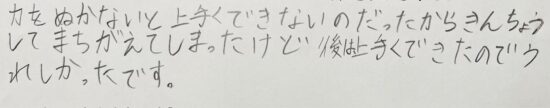 力をぬかないと上手くできないのだったからきんちょう
してまちがえてしまったけど後は上手くできたのでう
れしかったです。